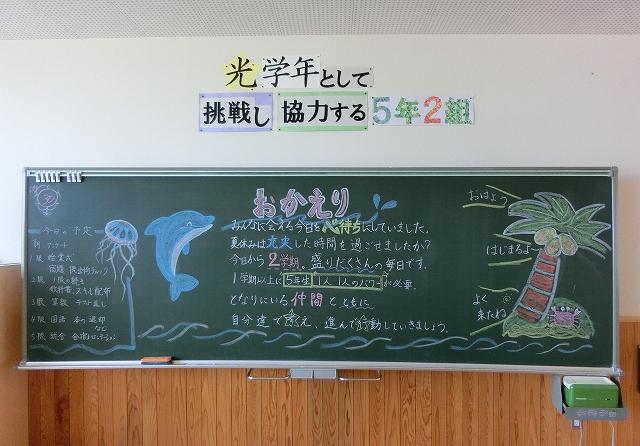 光学年として
挑戦し 協力する 5年2組
おかえり
みんなに会える今日を心待ちにしていました。
夏休みは充実した時間を過ごせましたか?
今日から2学期。盛りだくさんの毎日です。
1学期以上に5年生1人1人のパワーが必要。
となりにいる仲間とともに
自分達で考え、進んで行動していきましょう。
今日の予定
朝 アンケート
1限 始業式
宿題 提出物チェック
2限 1限の続き
教科書、スキル配布
3限 算数 テスト直し
4限 国語 本の返却
など
5限 総合
おはよう
はじまるよー
よく
来たね